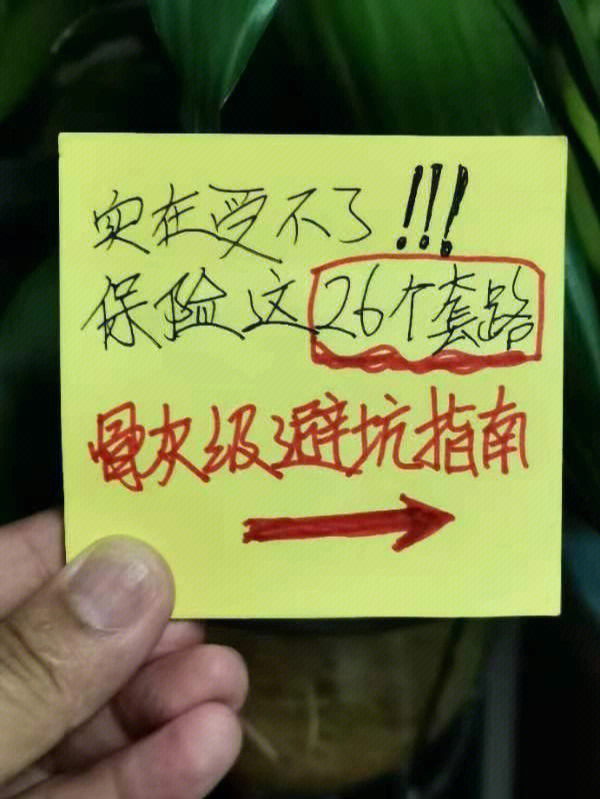 实在受不了!!!
保险这26个套路
骨灰级避坑指南